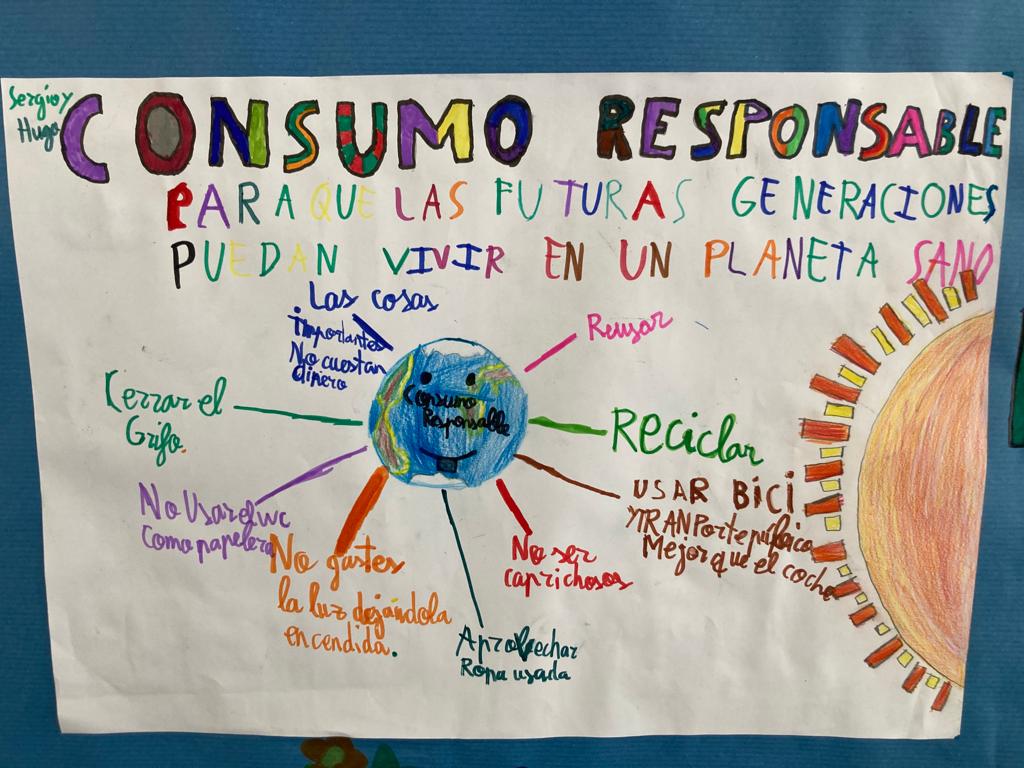 Sergio y
Hugo
CONSUMO RESPONSABLE
PARA QUE LAS FUTURAS GENERACIONES
PUEDAN VIVIR EN UN PLANETA SANO
Las cosas
importantes
No cuestan
dinero
Reusar
Consumo
Responsable
Cerrar el
Grifo.
Reciclar
No Usar el wc
Como papelera
USAR BICI
Y TRANPorte público
Mejor que el coche
No gastes
la luz dejándola
encendida.
No ser
caprichosos
Aprobechar
Ropa usada